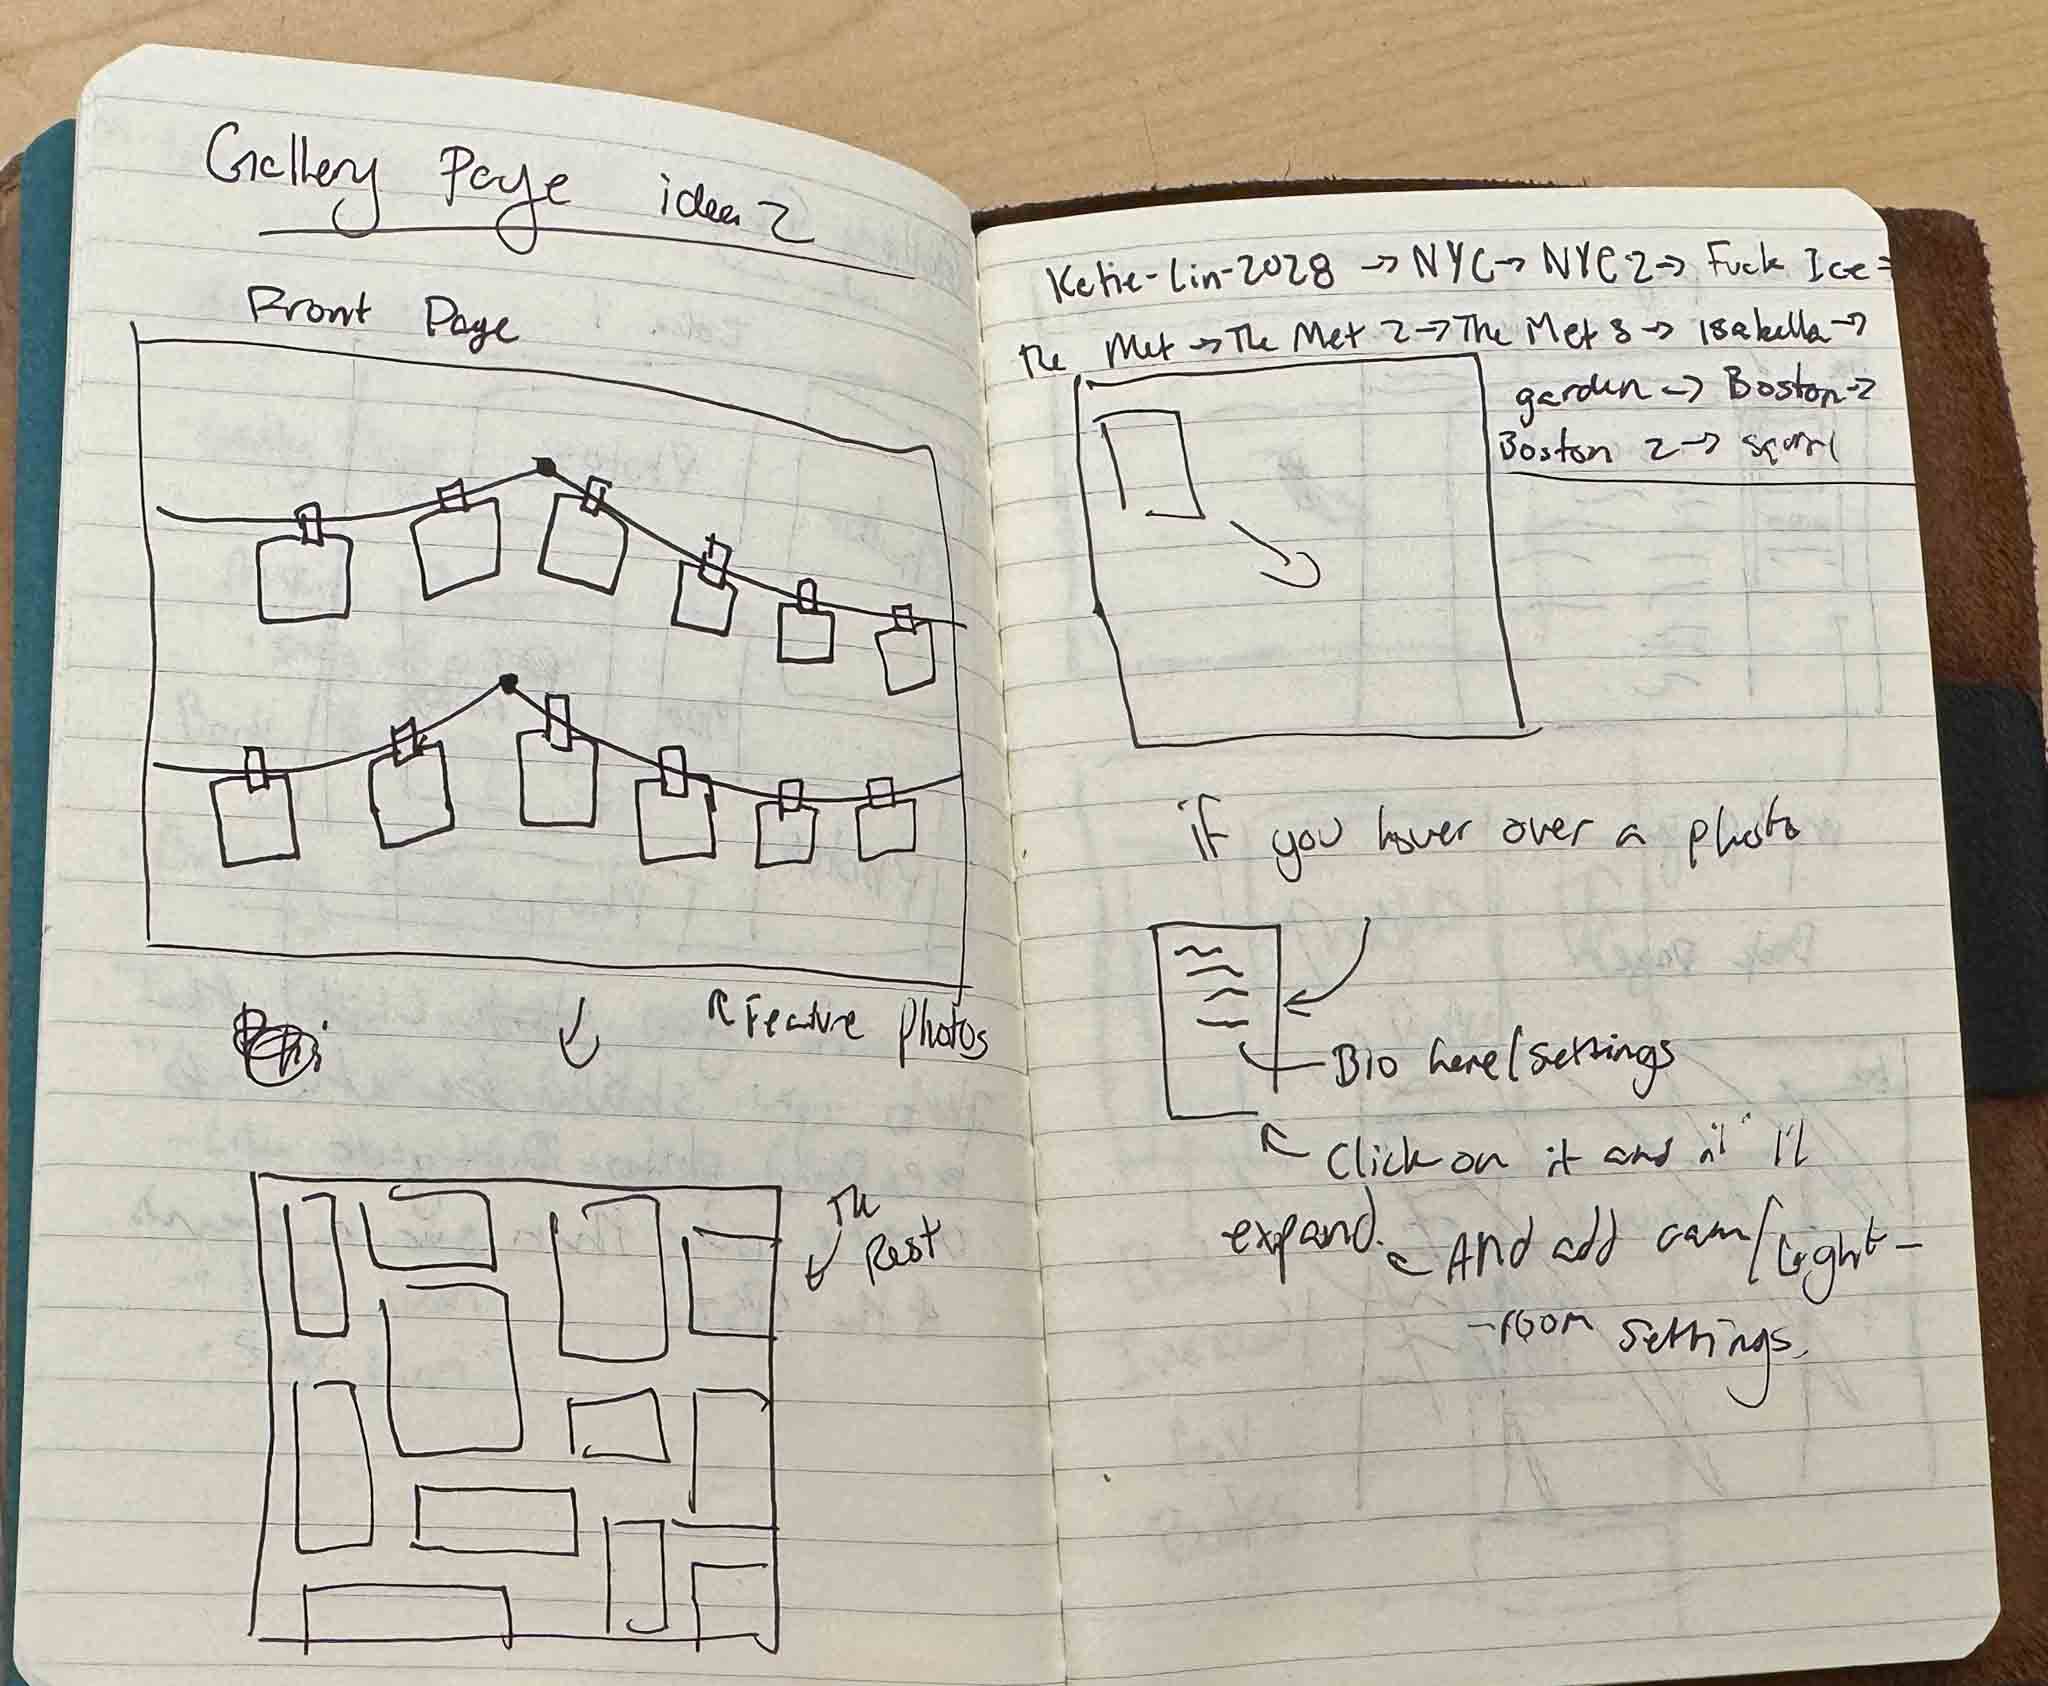 Gallery Page idea 2
Front Page
↖ Feature photos
The
Rest
Katie-Lin-2028 → NYC → NYC 2 → Fuck Ice →
The Met → The Met 2 → The Met 3 → Isabella →
garden → Boston →
Boston 2 →
if you hover over a photo
Bio here/settings
↖ Click on it and it'll
expand. ← And add cam/Light-
-room settings.